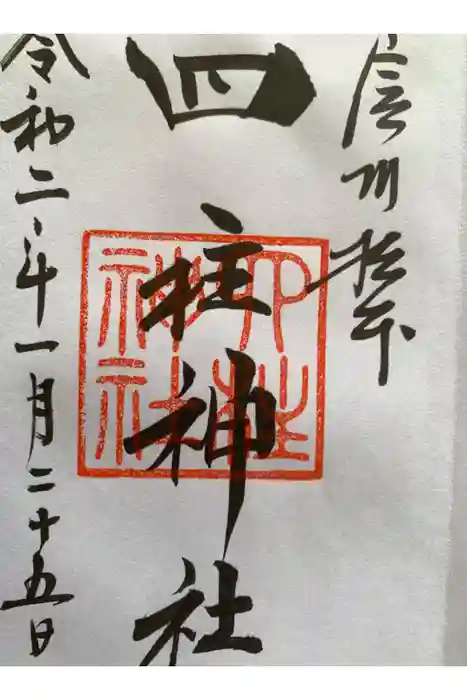 信州松本
四柱神社
四柱神社
令和二年一月二十五日